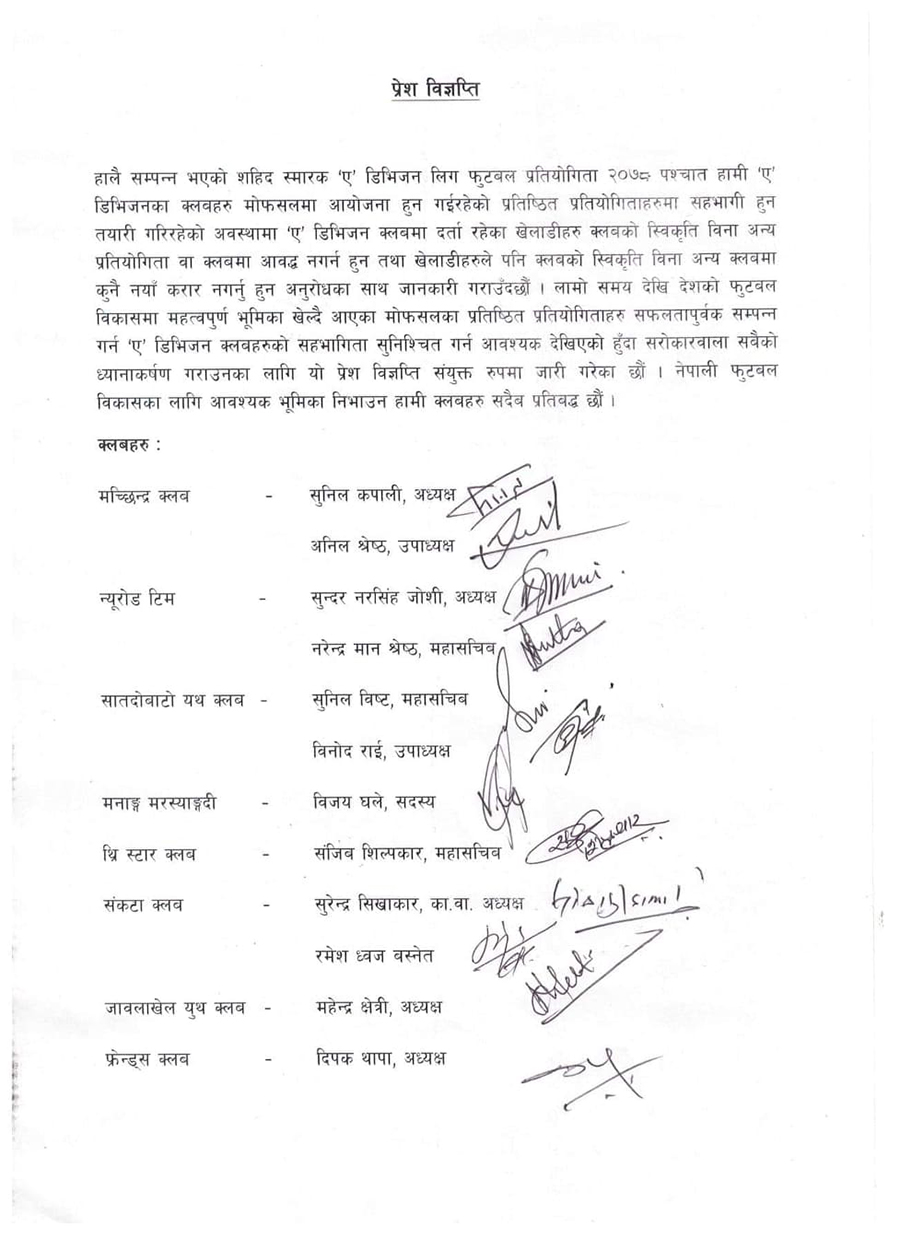 प्रेश विज्ञप्ति
हालै सम्पन्न भएको शहिद स्मारक ‘ए’ डिभिजन लिग फुटबल प्रतियोगिता २०७८ पश्चात हामी ‘ए’
डिभिजनका क्लबहरु मोफसलमा आयोजना हुन गईरहेको प्रतिष्ठित प्रतियोगिताहरुमा सहभागी हुन
तयारी गरिरहेको अवस्थामा ‘ए’ डिभिजन क्लबमा दर्ता रहेका खेलाडीहरु क्लबको स्विकृति विना अन्य
प्रतियोगिता वा क्लबमा आवद्ध नगर्न हुन तथा खेलाडीहरुले पनि क्लबको स्विकृति विना अन्य क्लबमा
कुनै नयाँ करार नगर्नु हुन अनुरोधका साथ जानकारी गराउँदछौं । लामो समय देखि देशको फुटबल
विकासमा महत्वपुर्ण भूमिका खेल्दै आएका मोफसलका प्रतिष्ठित प्रतियोगिताहरु सफलतापुर्वक सम्पन्न
गर्न ‘ए’ डिभिजन क्लबहरुको सहभागिता सुनिश्चित गर्न आवश्यक देखिएको हुँदा सरोकारवाला सबैको
ध्यानाकर्षण गराउनका लागि यो प्रेश विज्ञप्ति संयुक्त रुपमा जारी गरेका छौं । नेपाली फुटबल
विकासका लागि आवश्यक भूमिका निभाउन हामी क्लबहरु सदैव प्रतिबद्ध छौं ।
क्लबहरु :
मच्छिन्द्र क्लब - सुनिल कपाली, अध्यक्ष
अनिल श्रेष्ठ, उपाध्यक्ष
न्यूरोड टिम - सुन्दर नरसिंह जोशी, अध्यक्ष
नरेन्द्र मान श्रेष्ठ, महासचिव
सातदोबाटो यथ क्लब - सुनिल विष्ट, महासचिव
विनोद राई, उपाध्यक्ष
मनाङ्ग मरस्याङ्गदी - विजय घले, सदस्य
थ्रि स्टार क्लब - संजिव शिल्पकार, महासचिव
संकटा क्लब - सुरेन्द्र सिखाकार, का.वा. अध्यक्ष
रमेश ध्वज वस्नेत
जावलाखेल युथ क्लब - महेन्द्र क्षेत्री, अध्यक्ष
फ्रेन्ड्स क्लब - दिपक थापा, अध्यक्ष